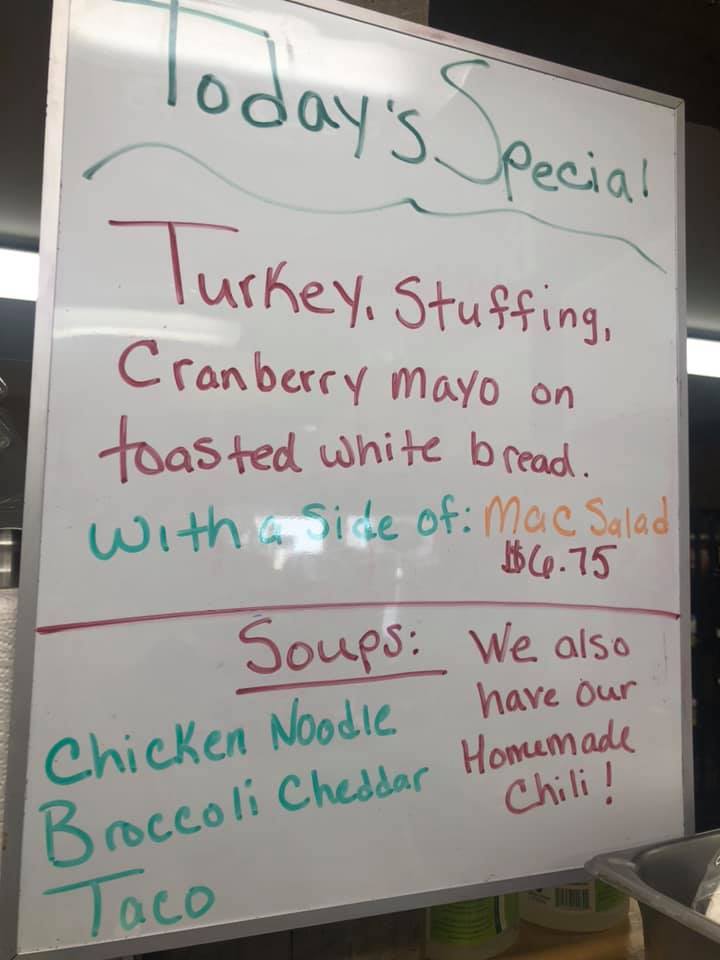 Today's Special
Turkey. Stuffing,
Cranberry mayo on
toasted white bread.
with a side of: Mac Salad
$6.75
Soups:
Chicken Noodle
Broccoli Cheddar
Taco
We also
have our
Homemade
Chili!